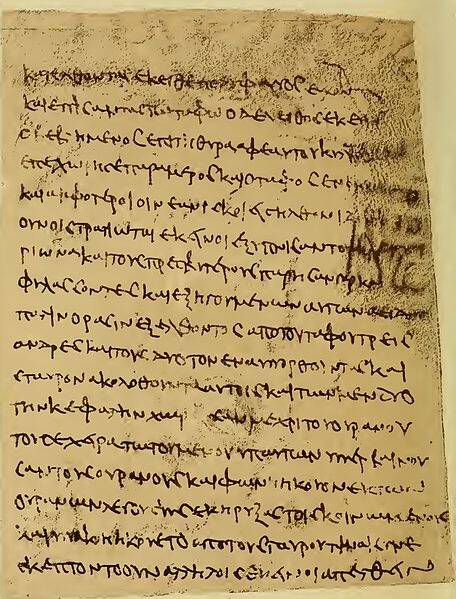 κατελθοντας εκειθε πολυ φεγγος εχοντας
και επισαντας τω ταφω ο δε λειθος εκεινος
ο βεβλημενος επι τη θυρα αφ εαυτου κυλισθεις
επεχωρησε παρα μερος και ο ταφος ενοιγη
και αμφοτεροι οι νεανισκοι εισηλθον ιδοντες
ουν οι στρατιωται εκεινοι εξυπνισαν τον κεντυ
ριωνα και τους πρεσβυτερους παρησαν γαρ και
φυλασσοντες και εξηγουμενων αυτων α ειδον
παλιν ορασιν εξελθοντος απο του ταφου τρεις
ανδρες και τους δυο τον ενα υπορθουντας και
σταυρον ακολοθουντα αυτοις και των μεν δυο
την κεφαλην χωρουσαν μεχρι του ουρανου
του δε χειρατωτουμενου υπ αυτων υπερβαινου
σαν τους ουρανους και φωνης ηκουον εκ των
ουρανων λεγουσης εκηρυξας τοις κοινωμενοις
και υπακοη ηκουετο απο του σταυρου τιναι συνε
σκεπτοντο ουν αλληλοις εκεινοι απελθειν